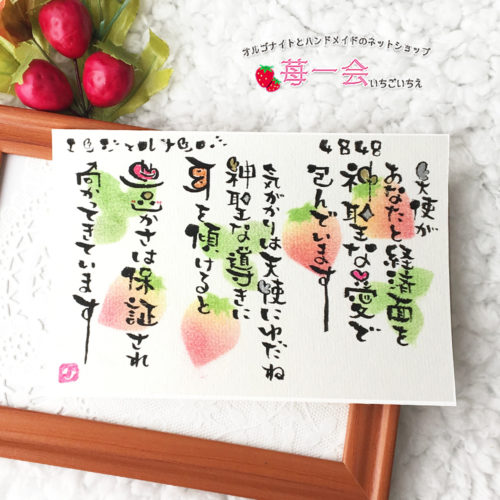 オルゴナイトとハンドメイドのネットショップ
苺一会いちごいちえ
4848
天使が
あなたと経済面を
神聖な愛で
包んでいます
気がかりは天使にゆだね
神聖な導きに
耳を傾けると
豊かさは保証され
向かってきています